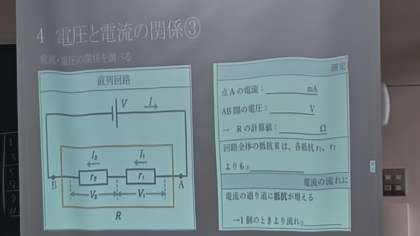 4 電圧と電流の関係③
電流・電圧の関係を調べる
直列回路
V
I
I₂
I₁
B
r₂
r₁
A
V₂
V₁
R
測定
点Aの電流: mA
AB間の電圧: V
→ Rの計算値: Ω
回路全体の抵抗Rは、各抵抗r₁、r₂
よりも
電流の流れに
電流の通り道に抵抗が増える
→1個のときより流れ